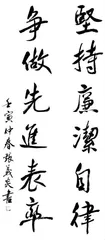 堅持廉潔自律
爭做先進表率
壬寅仲春張義炎書